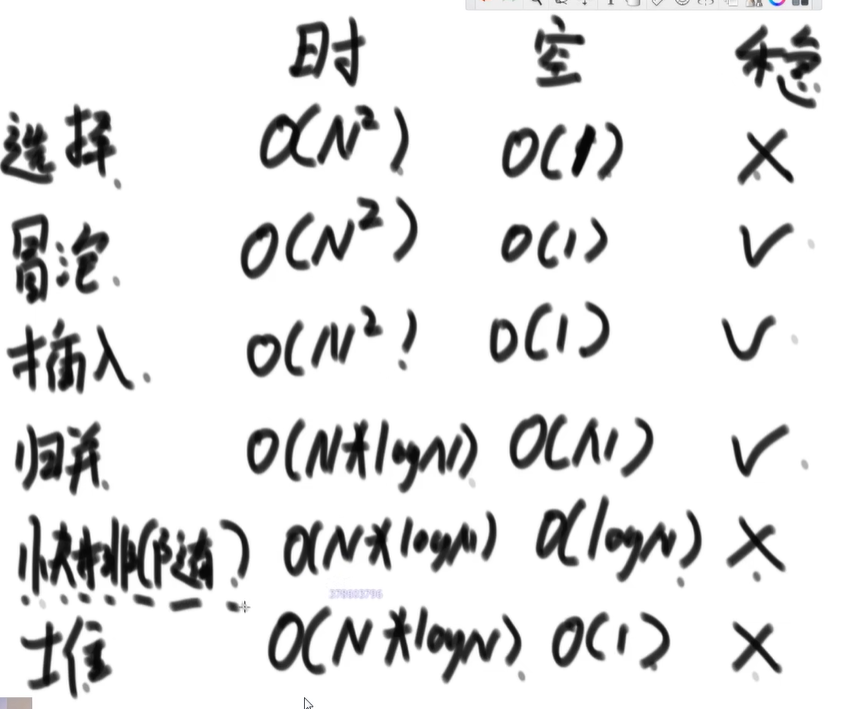 时 空 稳
选择 O(N²) O(1) ×
冒泡 O(N²) O(1) √
插入 O(N²) O(1) √
归并 O(N*logN) O(N) √
快排(随) O(N*logN) O(logN) ×
378803796
堆 O(N*logN) O(1) ×